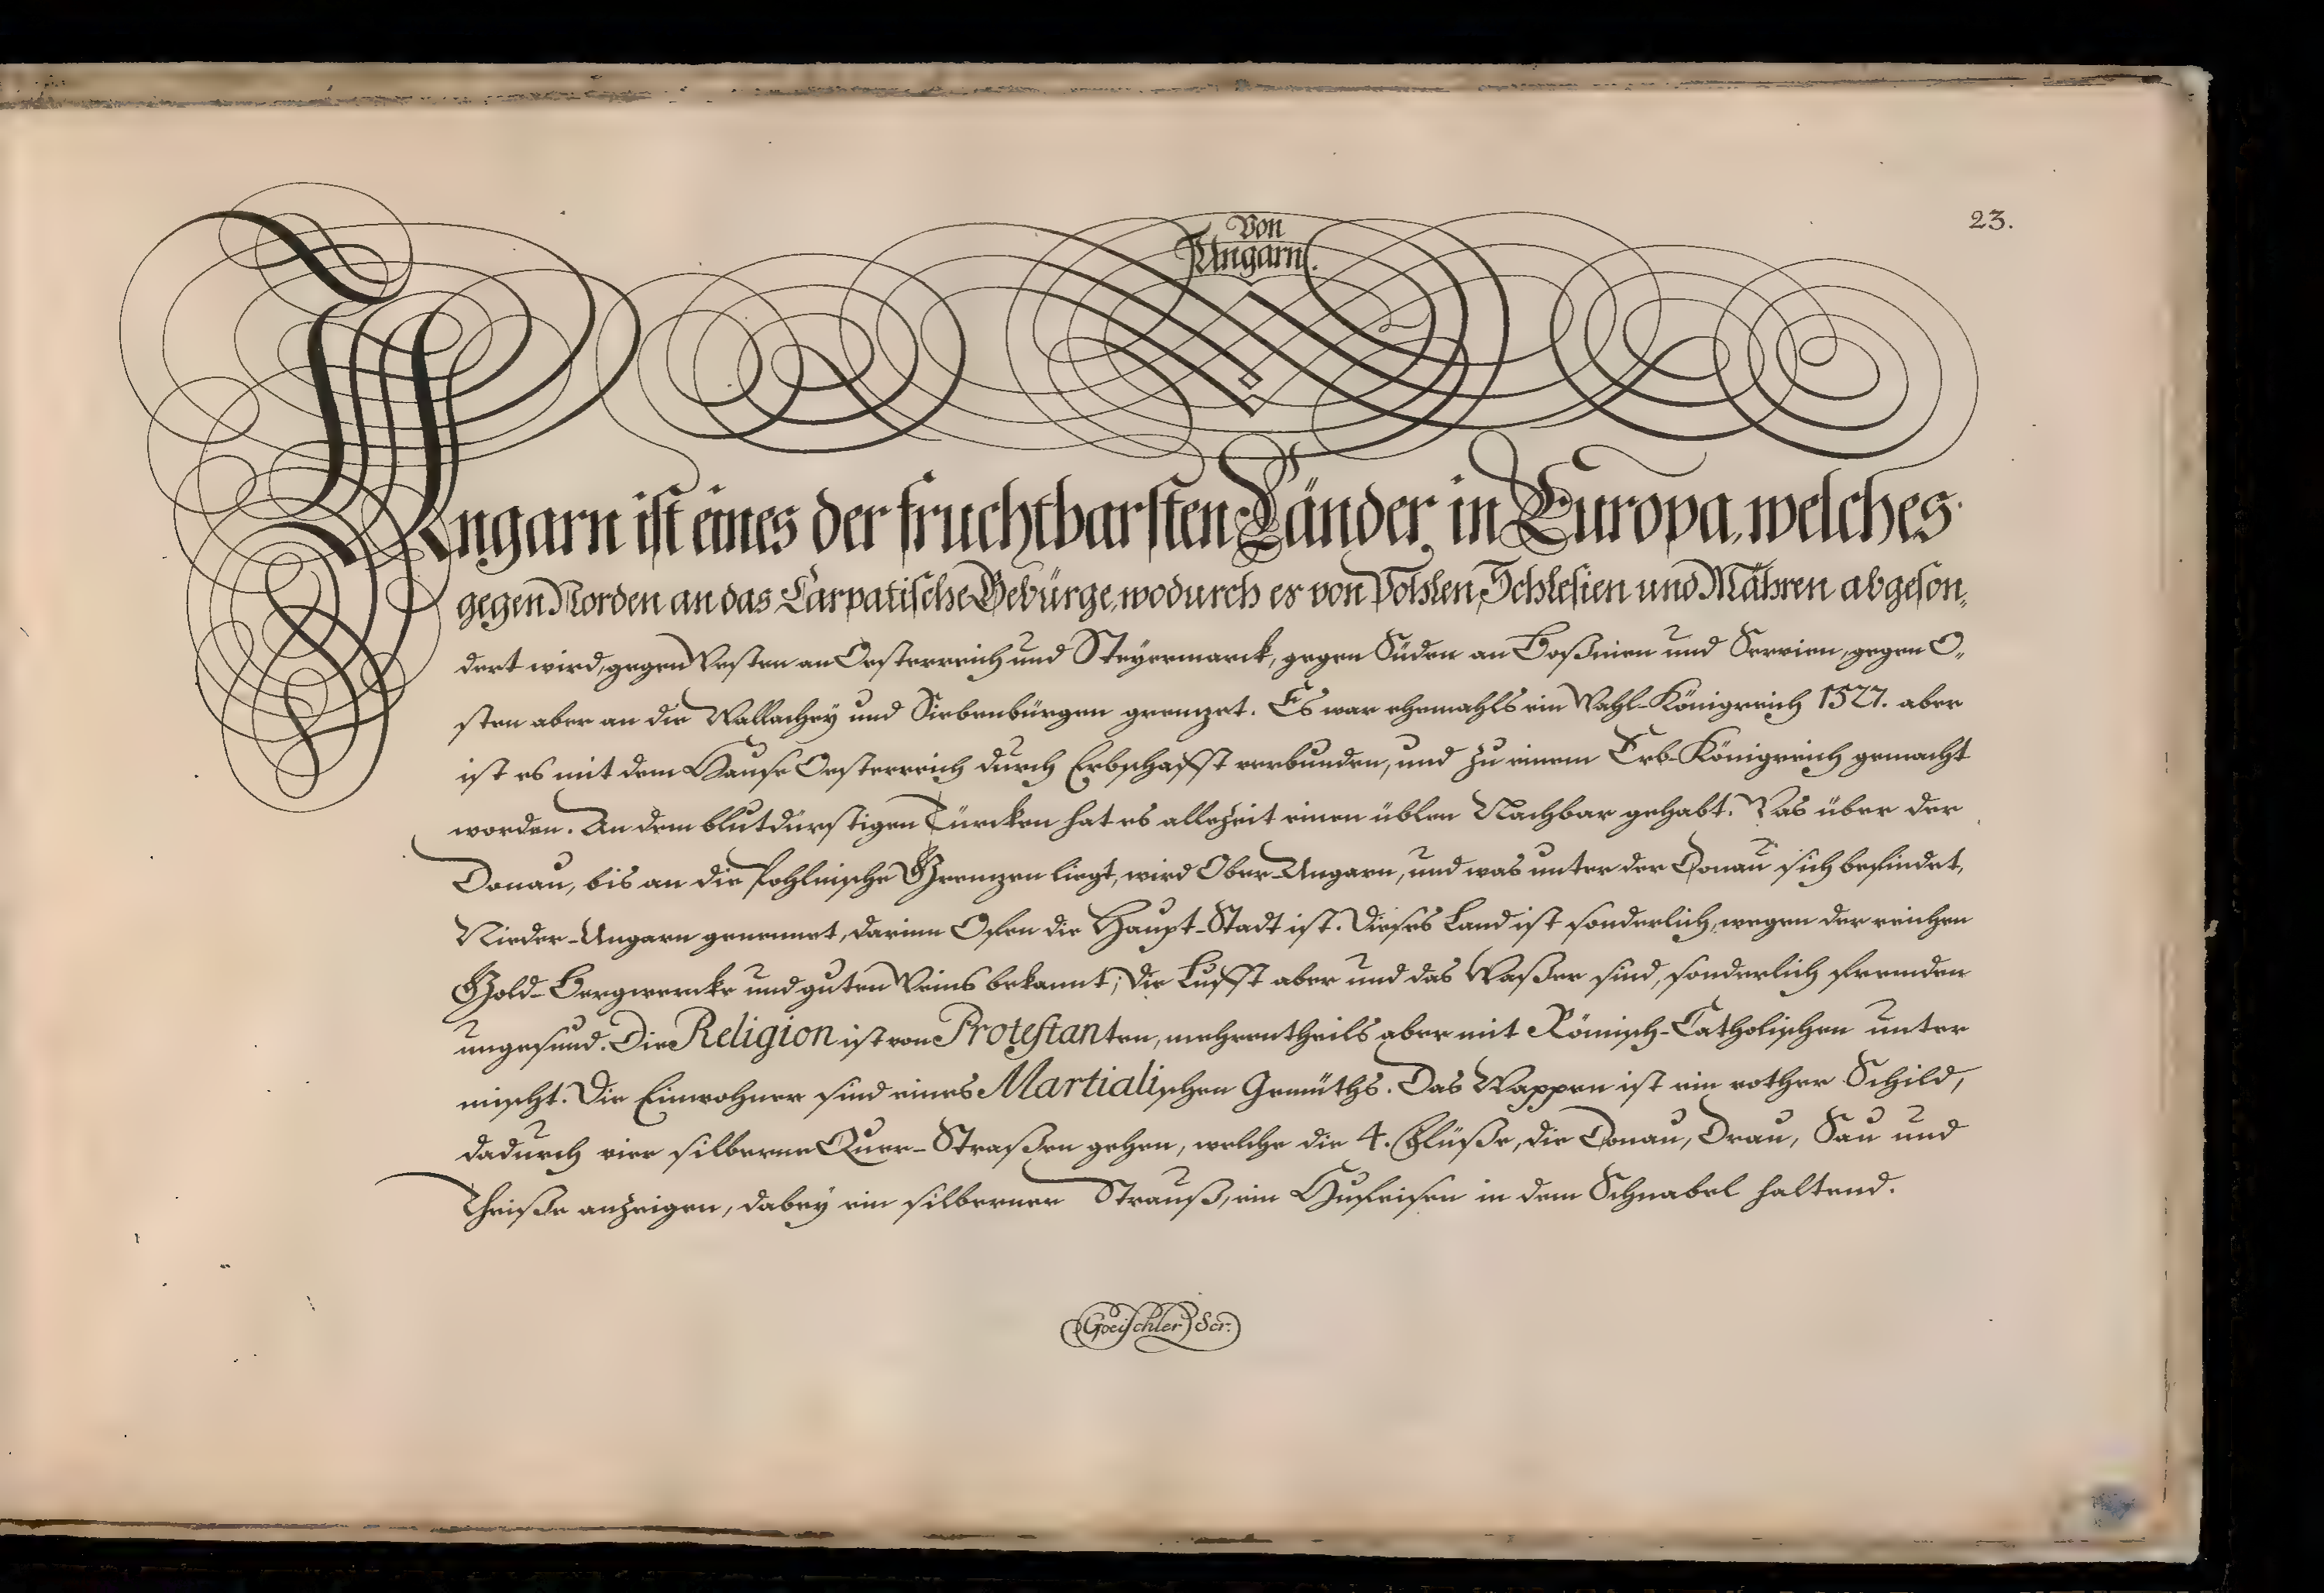 23.
Von
Ungarn.
Ungarn ist eines der fruchtbarsten Länder in Europa, welches
gegen Norden an das Carpatische Gebürge, wodurch es von Pohlen, Schlesien und Mähren abgeson„
dert wird, gegen Westen an Oesterreich und Steyermarck, gegen Süden an Boßnien und Servien, gegen O„
sten aber an die Wallachey und Siebenbürgen grenzet. Es war ehemahls ein Wahl-Königreich 1527. aber
ist es mit dem Hause Oesterreich durch Erbschafft verbunden, und zu einem Erb-Königreich gemacht
worden. An dem blutdürstigen Türcken hat es allezeit einen üblen Nachbar gehabt. Was über der
Donau, bis an die Pohlnische Grenzen liegt, wird Ober-Ungarn, und was unter der Donau sich befindet,
Nieder-Ungarn genennet, darinn Ofen die Haupt-Stadt ist. Dieses Land ist sonderlich, wegen der reichen
Gold-Bergwercke und guten Weins bekannt; die Lufft aber und das Waßer sind, sonderlich fremden
ungesund. Die Religion ist von Protestanten, mehrentheils aber mit Römisch-Catholischen unter
mischt. Die Einwohner sind eines Martialischen Gemüths. Das Wappen ist ein rother Schild,
dadurch vier silberne Quer-Straßen gehen, welche die 4. Flüße, die Donau, Drau, Sau und
Theiße anzeigen, dabey ein silberner Strauß, ein Hufeisen in dem Schnabel haltend.
Goeischler Scr.